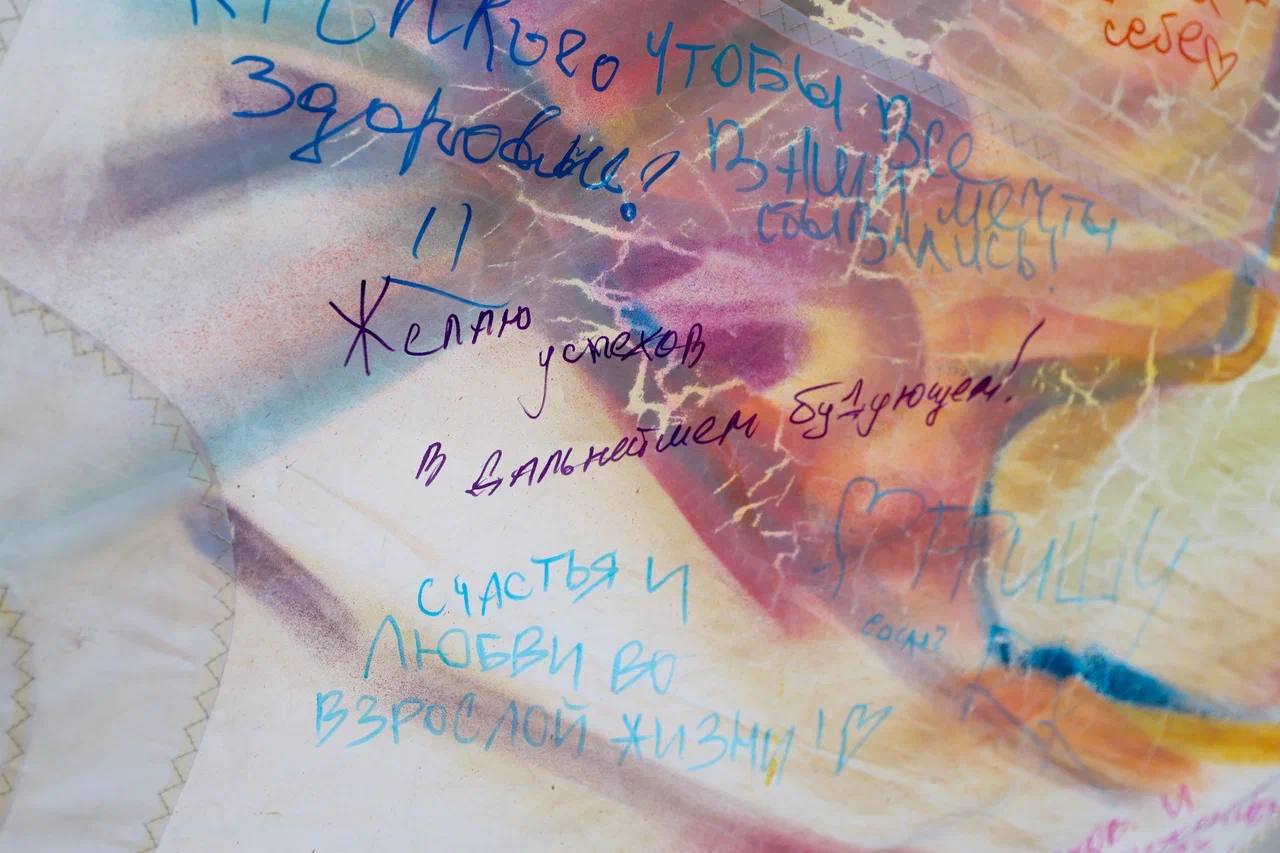 крепкого
здоровье!
чтобы все
в жизни мечты
сбывались!
себе♡
Желаю
успехов
в дальнейшем будующем!
СЧАСТЬЯ И
ЛЮБВИ ВО
ВЗРОСЛОЙ ЖИЗНИ!
ГРИШУ
и